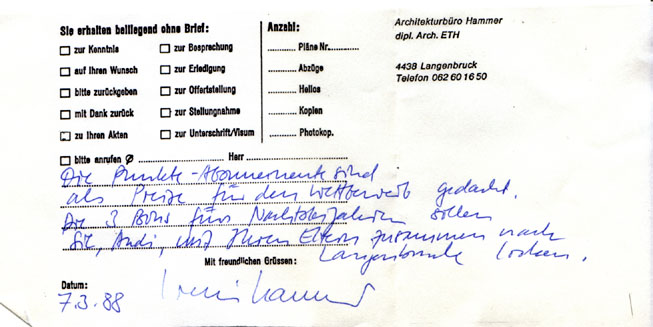 Sie erhalten beiliegend ohne Brief:
☐ zur Kenntnis ☐ zur Besprechung
☐ auf Ihren Wunsch ☐ zur Erledigung
☐ bitte zurückgeben ☐ zur Offertstellung
☐ mit Dank zurück ☐ zur Stellungnahme
☐ zu Ihren Akten ☐ zur Unterschrift/Visum
☐ bitte anrufen Ø .................... Herr ....................
Anzahl:
.......... Pläne Nr. ..........
.......... Abzüge
.......... Helios
.......... Kopien
.......... Photokop.
Architekturbüro Hammer
dipl. Arch. ETH
4438 Langenbruck
Telefon 062 60 16 50
Die Punkte-Abonnemente sind
als Preise für den Wettbewerb gedacht.
Die 3 Bons fürs sollen
Sie, Andi, mit Ihren Eltern zusammen nach
Langenbruck locken.
Mit freundlichen Grüssen:
Datum:
7.3.88